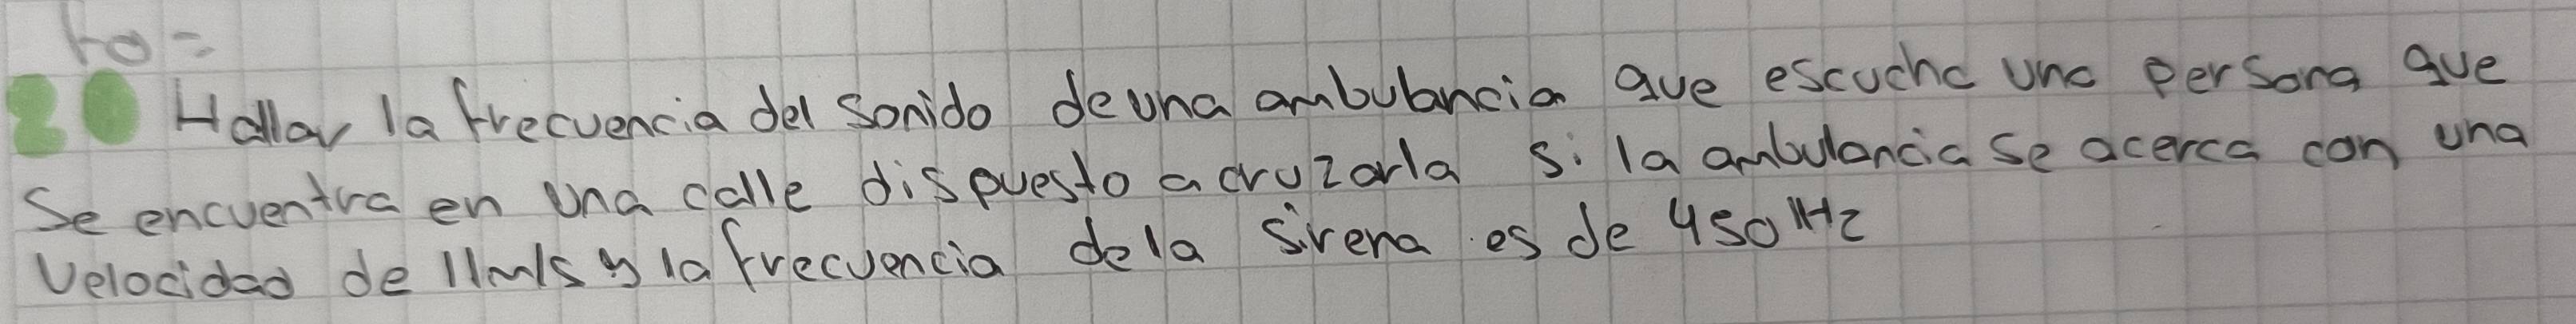 fo=
20 Hallar la frecuencia del sonido de una ambulancia que escucha una persona que
se encuentra en una calle dispuesto a cruzarla si la ambulancia se acerca con una
velocidad de 11m/s y la frecuencia de la sirena es de 450 Hz